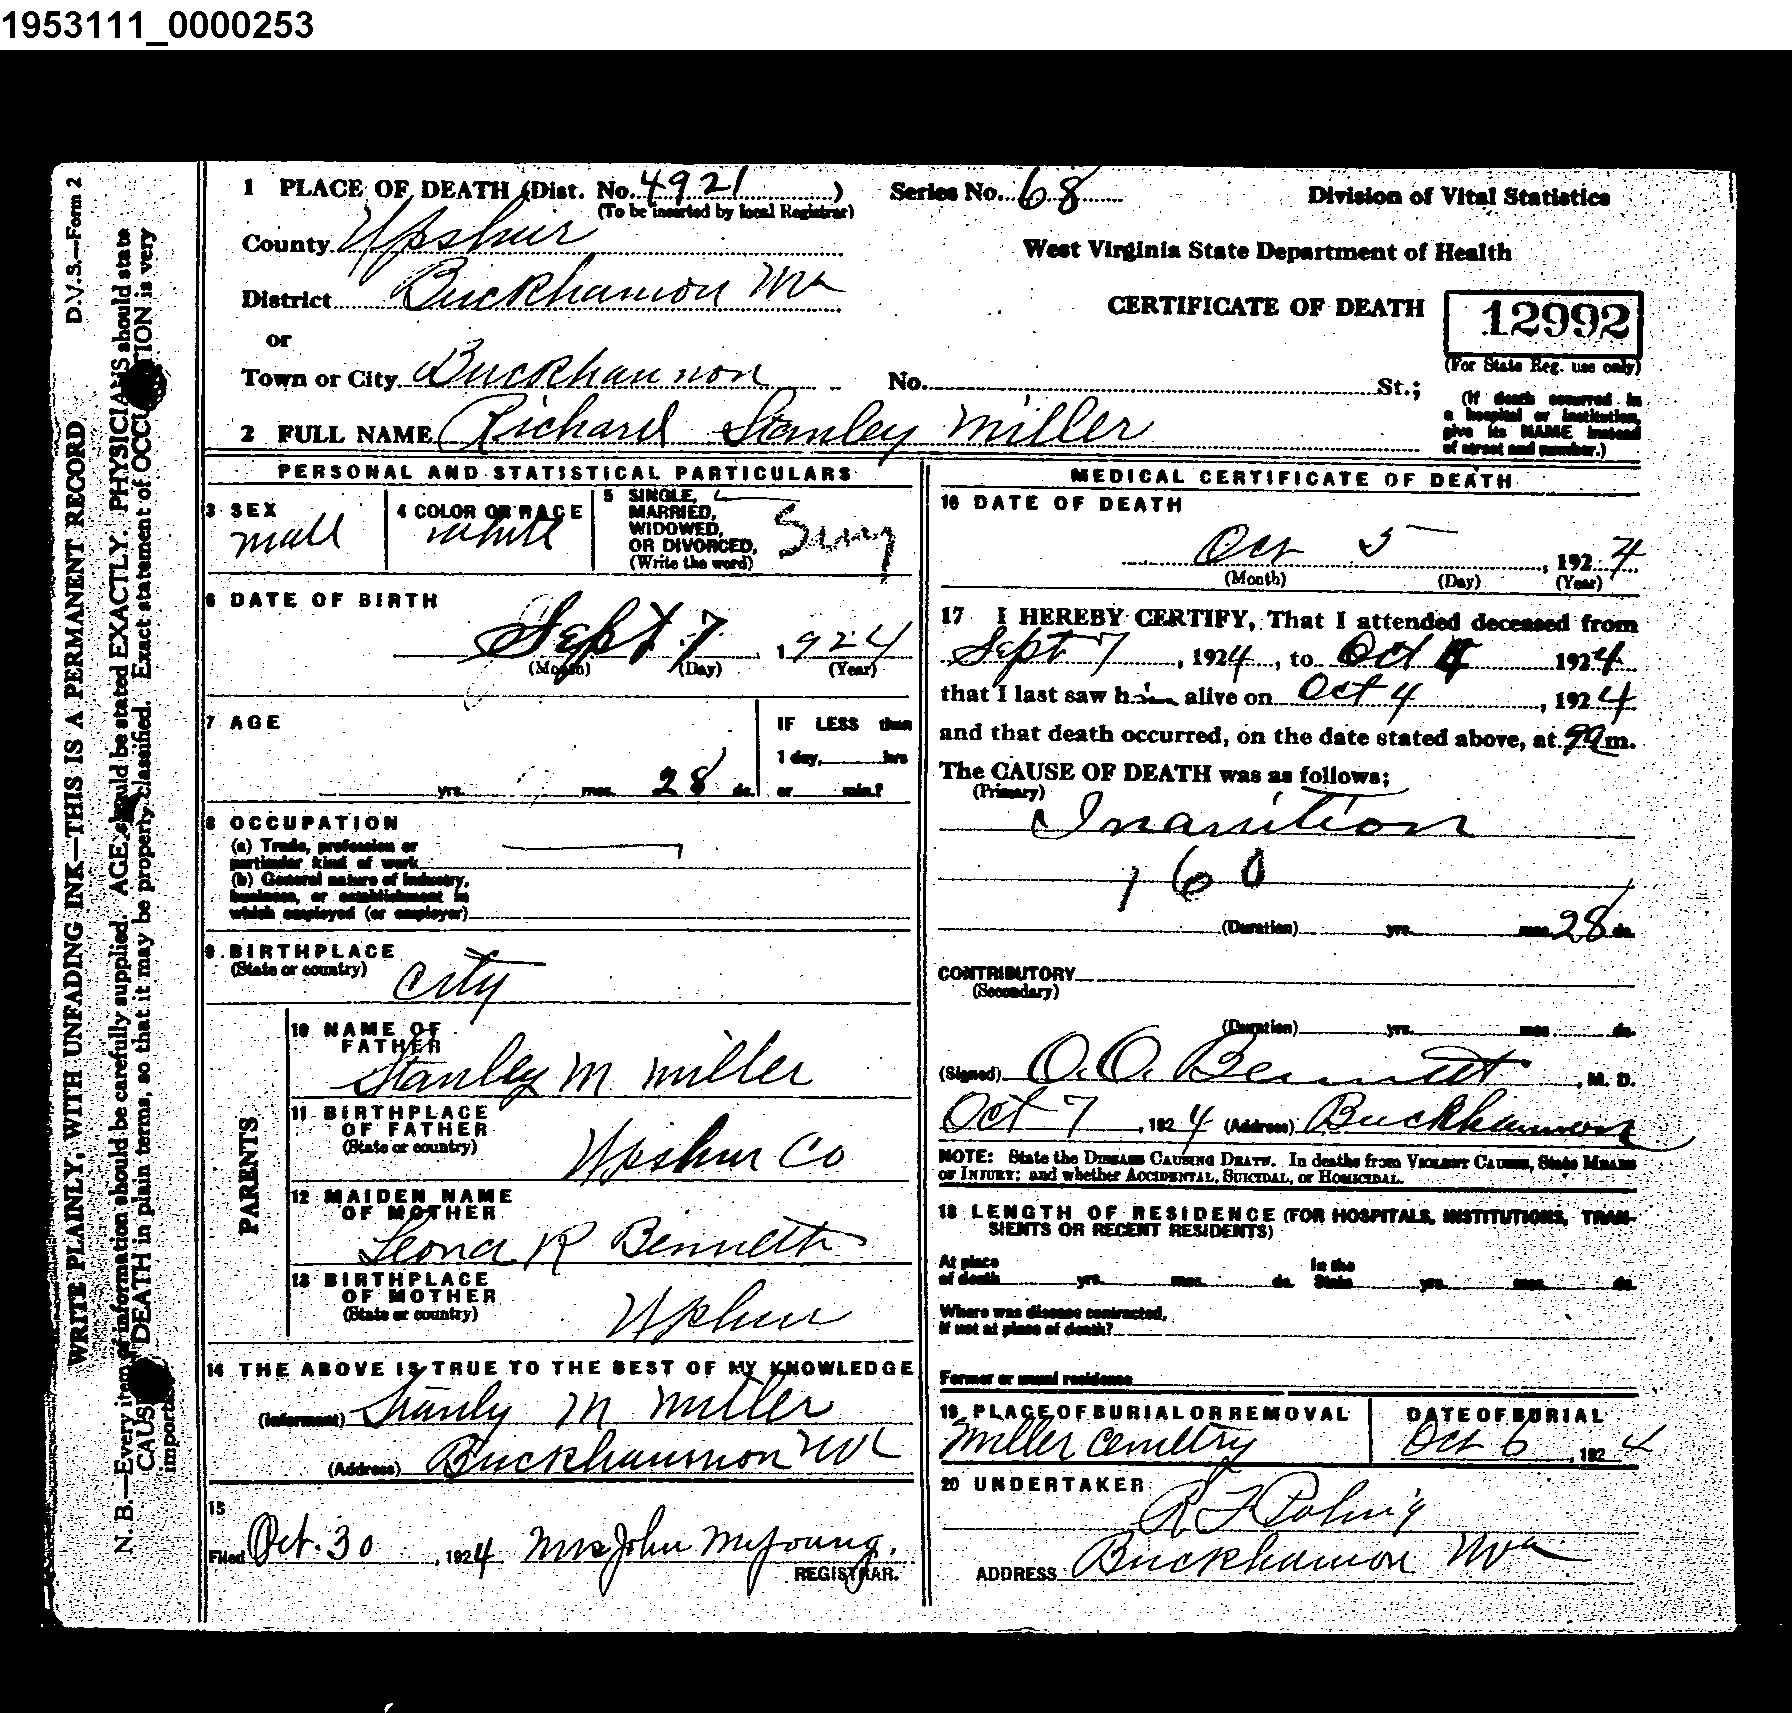 1953111_0000253
D.V.S.—Form 2
WRITE PLAINLY, WITH UNFADING INK—THIS IS A PERMANENT RECORD
N. B.—Every item of information should be carefully supplied. AGE should be stated EXACTLY. PHYSICIANS should state
CAUSE DEATH in plain terms, so that it may be properly classified. Exact statement of OCCUPATION is very
important
1 PLACE OF DEATH (Dist. No. 4921)
(To be inserted by local Registrar)
Series No. 68
Division of Vital Statistics
County Upshur
West Virginia State Department of Health
District Buckhannon Wva
CERTIFICATE OF DEATH
12992
(For State Reg. use only)
or
Town or City Buckhannon
No. St.;
(If death occurred in
a hospital or institution,
give its NAME instead
of street and number.)
2 FULL NAME Richard Stanley Miller
PERSONAL AND STATISTICAL PARTICULARS
3 SEX
male
4 COLOR OR RACE
white
5 SINGLE,
MARRIED,
WIDOWED,
OR DIVORCED,
(Write the word)
Sing
6 DATE OF BIRTH
Sept 7, 1924
(Month) (Day) (Year)
7 AGE
yrs. mos. 28 ds.
IF LESS than
1 day, hrs
or min.?
8 OCCUPATION
(a) Trade, profession or
particular kind of work
(b) General nature of industry,
business, or establishment in
which employed (or employer)
9 BIRTHPLACE
(State or country)
City
PARENTS
10 NAME OF
FATHER
Stanley M Miller
11 BIRTHPLACE
OF FATHER
(State or country)
Upshur Co
12 MAIDEN NAME
OF MOTHER
Leona R Bennett
13 BIRTHPLACE
OF MOTHER
(State or country)
Upshur
14 THE ABOVE IS TRUE TO THE BEST OF MY KNOWLEDGE
(Informant) Stanly M Miller
(Address) Buckhannon Wva
15
Filed Oct. 30, 1924 Mrs John McYoung.
REGISTRAR.
MEDICAL CERTIFICATE OF DEATH
16 DATE OF DEATH
Oct 5, 1924
(Month) (Day) (Year)
17 I HEREBY CERTIFY, That I attended deceased from
Sept 7, 1924, to Oct 1924
that I last saw him alive on Oct 4, 1924
and that death occurred, on the date stated above, at 9a m.
The CAUSE OF DEATH was as follows;
(Primary)
Inanition
160
(Duration) yrs. mos. 28 ds.
CONTRIBUTORY
(Secondary)
(Duration) yrs. mos. ds.
(Signed) O.O. Bennett, M. D.
Oct 7, 1924 (Address) Buckhannon
NOTE: State the DISEASE CAUSING DEATH. In deaths from VIOLENT CAUSES, State MEANS
OF INJURY; and whether ACCIDENTAL, SUICIDAL, or HOMICIDAL.
18 LENGTH OF RESIDENCE (FOR HOSPITALS, INSTITUTIONS, TRAN-
SIENTS OR RECENT RESIDENTS)
At place
of death yrs. mos. ds.
In the
State yrs. mos. ds.
Where was disease contracted,
if not at place of death?
Former or usual residence
19 PLACE OF BURIAL OR REMOVAL
Miller Cemetry
DATE OF BURIAL
Oct 6, 1924
20 UNDERTAKER
ADDRESS Buckhannon Wva